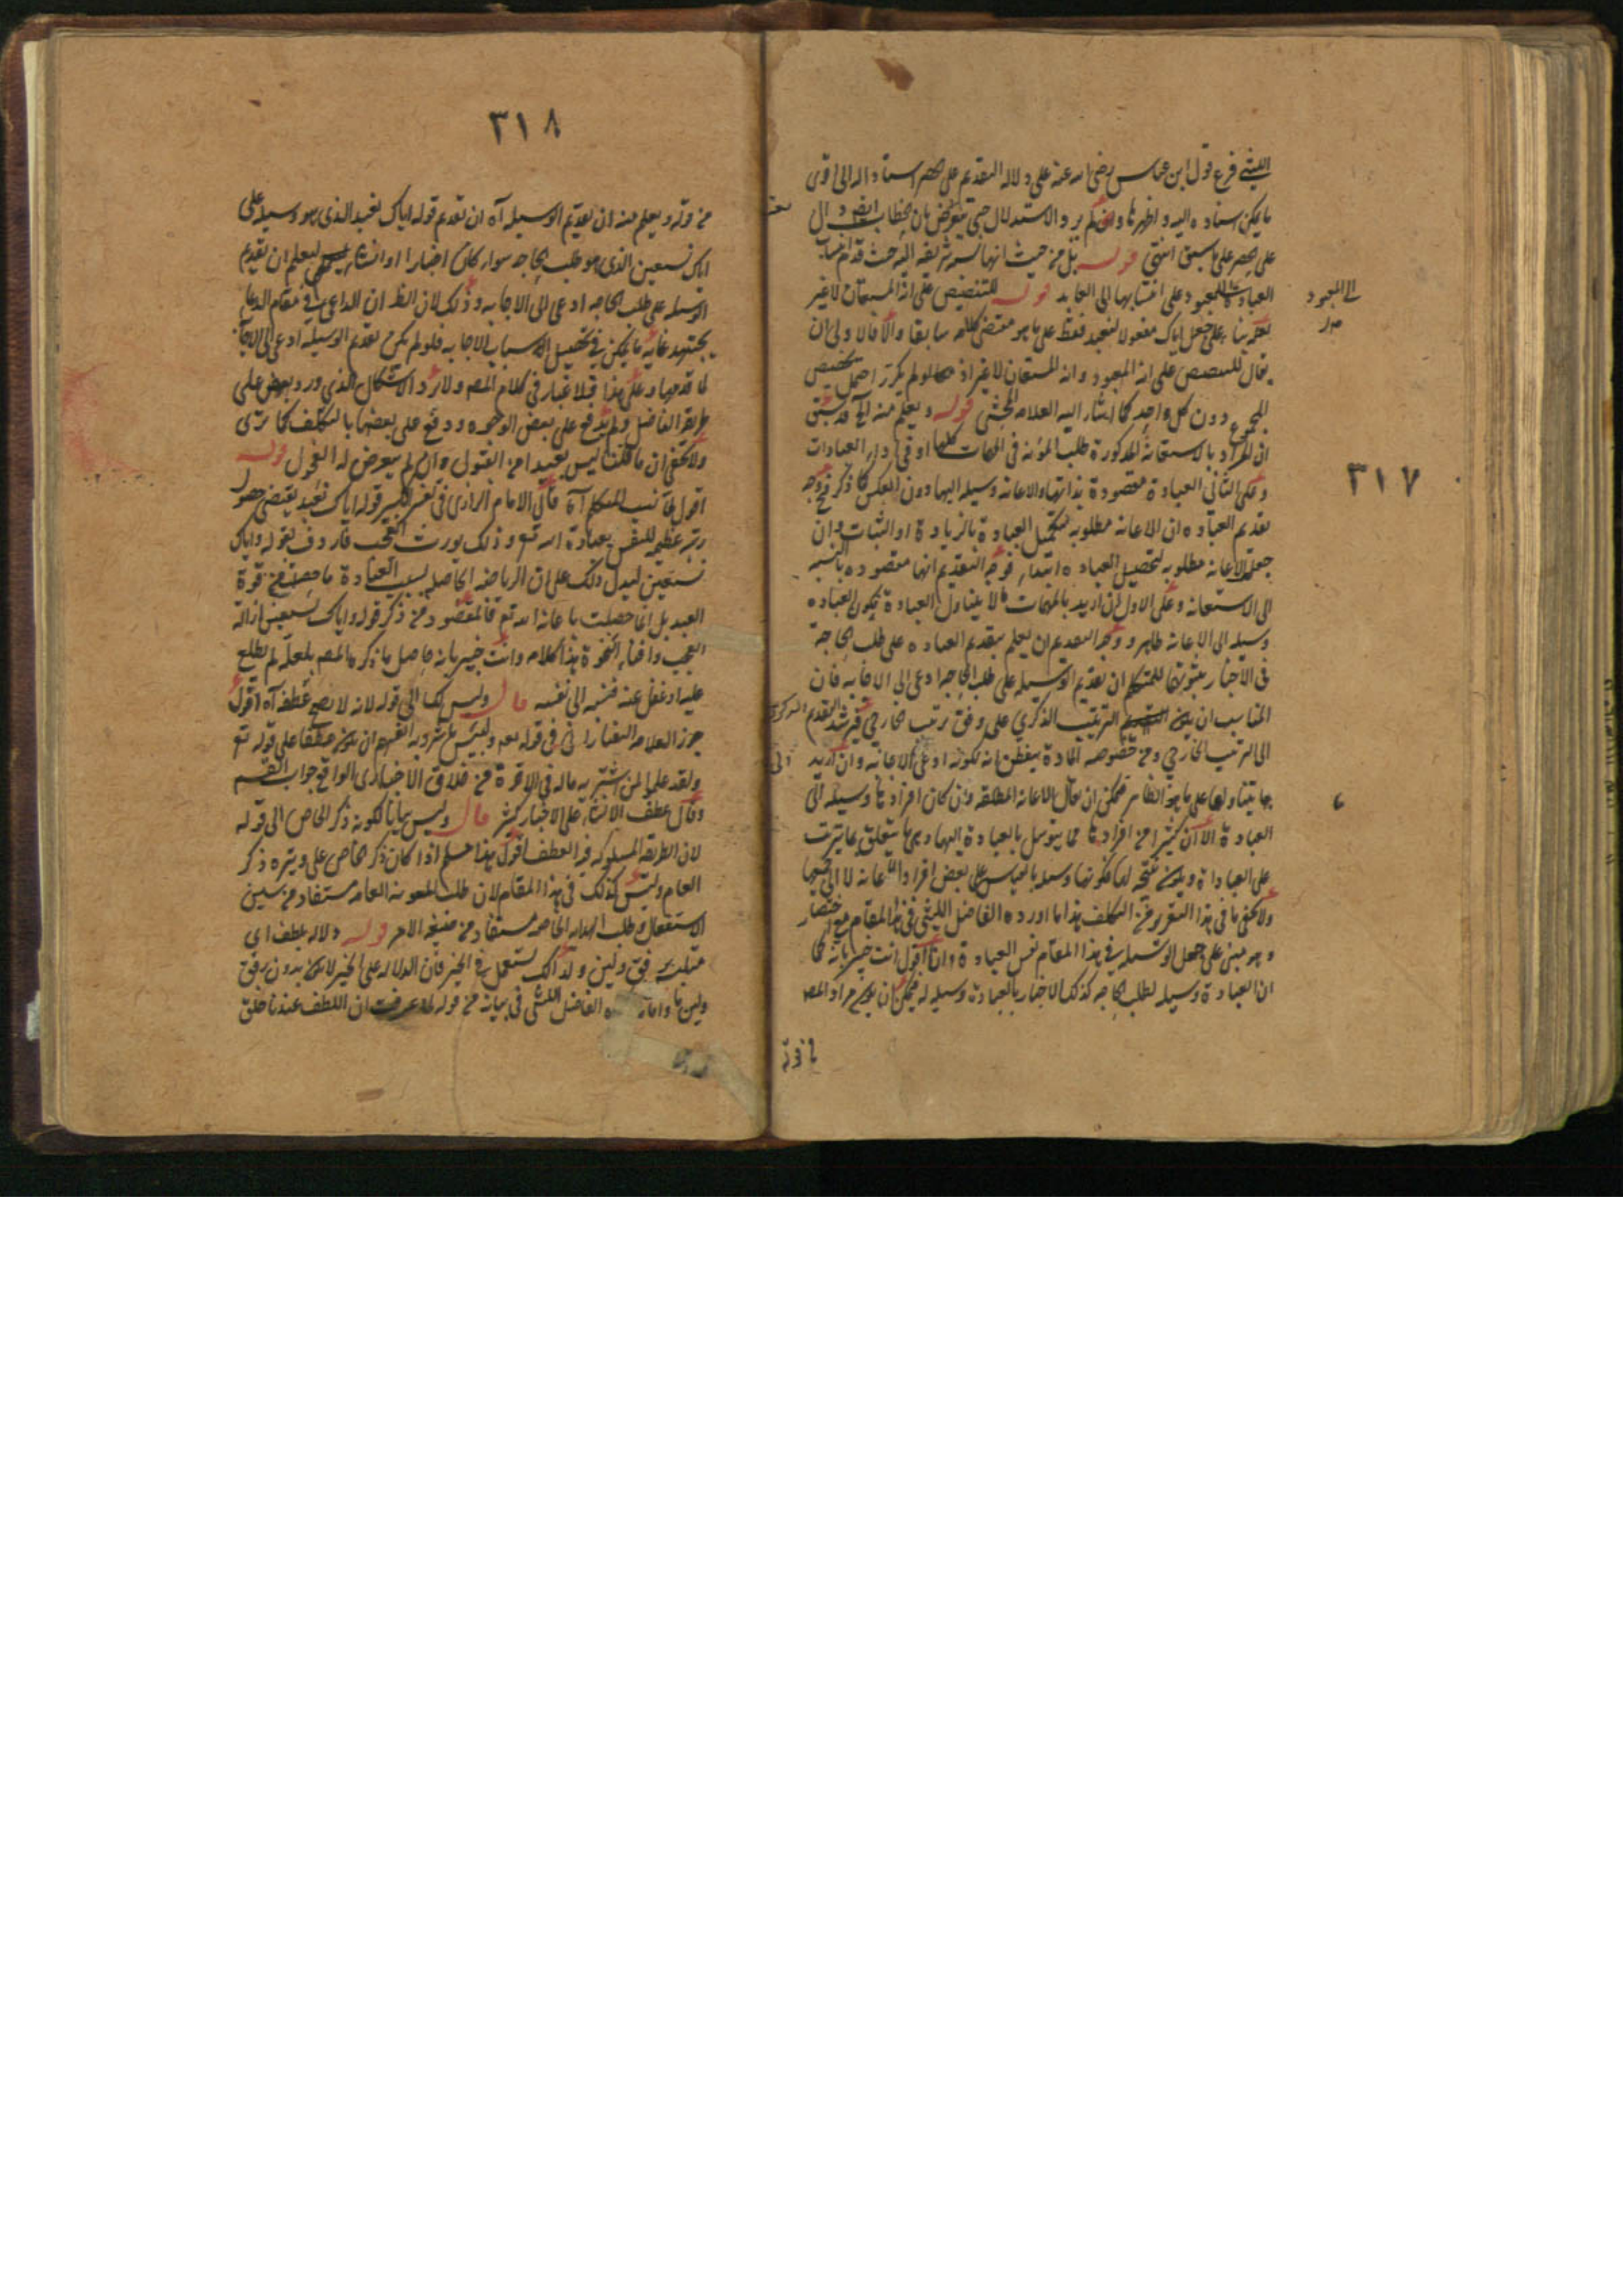 ٣١٧
الليثي فرع قول ابن عباس رضي الله عنه على دلالة التقديم على الحصر استنادا له الى اقوى
ما يمكن اسناده اليه واظهرها ولم يرد الاستدلال حتى يتعرض بان الخطاب
على الحصر على ما سبق انتهى قوله بل من حيث انها نسبة شريفة اليه حيث قدم
العبادة للمعبود على انتسابها الى العابد قوله للتنصيص على انه المستعان لا غير
الى المعبود
بناء على جعل اياك مفعولا لنعبد فقط على ما هو مقتضى كلامه سابقا والا فالاولى ان
يقال للتنصيص على انه المعبود وانه المستعان لا غير اذ لو لم يكرر احتمل تخصيص
المجموع دون كل واحد كما اشار اليه العلامة المحشي قوله ويعلم منه الخ قد سبق
ان المراد بالاستعانة المذكورة طلب المؤنة في المهمات كلها او في اداء العبادات
وعلى الثاني العبادة مقصودة بذاتها والاعانة وسيلة اليها دون العكس كما ذكر فوجه
تقديم العبادة ان الاعانة مطلوبة لتكميل العبادة بالزيادة او الثبات وان
جعلت الاعانة مطلوبة لتحصيل العبادة ابتداء فوجه التقديم انها مقصودة بالنسبة
الى الاستعانة وعلى الاول ان اريد بالمهمات ما لا يتناول العبادة يكون العبادة
وسيلة الى الاعانة ظاهر ووجه التقديم ان يعلم بتقديم العبادة على طلب الحاجة
في الاخبار بثبوتها للمتكلم ان تقديم الوسيلة على طلب الحاجة ادعى الى الاجابة فان
المناسب ان يكون الترتيب الذكري على وفق ترتيب الخارجي فيرشد التقديم الذكري
الى الترتيب الخارجي ومن خصوصه المادة يتفطن انه لكونه ادعى الى الاعانة وان اريد
بها يتناولها على ما هو الظاهر فيمكن ان يقال الاعانة المطلقة وان كان افرادها وسيلة الى
العبادة الا ان كثيرا من افرادها مما يتوسل بالعبادة اليها
على العبادة ويكون نتيجة لها فكونها وسيلة بالقياس على بعض افراد الاعانة لا الى جميعها
ولا يخفى ما في هذا التقرير من التكلف هذا ما اورده الفاضل الليثي في هذا المقام مع اختصار
وهو مبني على جعل الوسيلة في هذا المقام نفس العبادة وانا اقول انت خبير بانه كما
ان العبادة وسيلة لطلب الحاجة كذلك الاخبار بالعبادة وسيلة له فيمكن ان يكون مراد المص
٣١٨
من قوله ويعلم منه ان تقديم الوسيلة آه ان تقديم قوله اياك نعبد الذي هو وسيلة على
اياك نستعين الذي هو طلب الحاجة سواء كان اخبارا او انشاء ليعلم ان تقديم
الوسيلة على طلب الحاجة ادعى الى الاجابة وذلك لان الظ ان الداعي في مقام الدعاء
يجتهد غاية ما يمكن في تحصيل الاسباب الاجابة فلو لم يكن تقديم الوسيلة ادعى الى الاجابة
لما قدمها وعلى هذا فلا غبار في كلام المص ولا يرد الاشكال الذي ورد بعضه على
ظاهر الفاضل ولم يندفع على بعض الوجوه ودفع على بعضها بالتكلف كما ترى
ولا يخفى ان ما قلنا ليس ببعيد من القبول وان لم يتعرض له الفحول قوله
اقول لما نسب المتكلم آه قال الامام الرازي في تفسير الكبير قوله اياك نعبد يقتضي حصول
رتبة عظيمة للنفس بعبادة الله تع وذلك يورث العجب فاردف بقوله واياك
نستعين ليدل ذلك على ان الرياضة الحاصلة بسبب العبادة ما حصلت من قوة
العبد بل انما حصلت باعانة الله تع فالمقصود من ذكر قوله واياك نستعين ازالة
العجب وافناء النخوة هذا كلامه وانت خبير بانه حاصل ما ذكره المص فلعله لم يطلع
عليه او غفل عنه فنسبه الى نفسه قال وليس كما الى قوله لانه لا يصح عطفه آه اقول
جوز العلامة التفتازاني في قوله تع ولبئس ما شروا به انفسهم ان يكون عطفا على قوله تع
ولقد علموا لمن اشتريه ماله في الاخرة من خلاق الاخباري الواقع جواب القسم
وقال عطف الانشاء على الاخبار كثير قال وليس بيانا لكونه ذكر الخاص الى قوله
لان الطريقة المسلوكة فيه العطف اقول هذا مسلم اذا كان ذكر الخاص على وتيرة ذكر
العام وليس كذلك في هذا المقام لان طلب المعونة العامة مستفاد من سين
الاستفعال وطلب الهداية الخاصة مستفاد من صيغة الامر قوله دلالة بلطف اي
متلبسة برفق ولين ولذلك تستعمل في الخير فان الدلالة على الخير لا يكون بدون رفق
ولين ما واما الفاضل الليثي في بيانه من قوله لما عرفت ان اللطف عندنا خلق